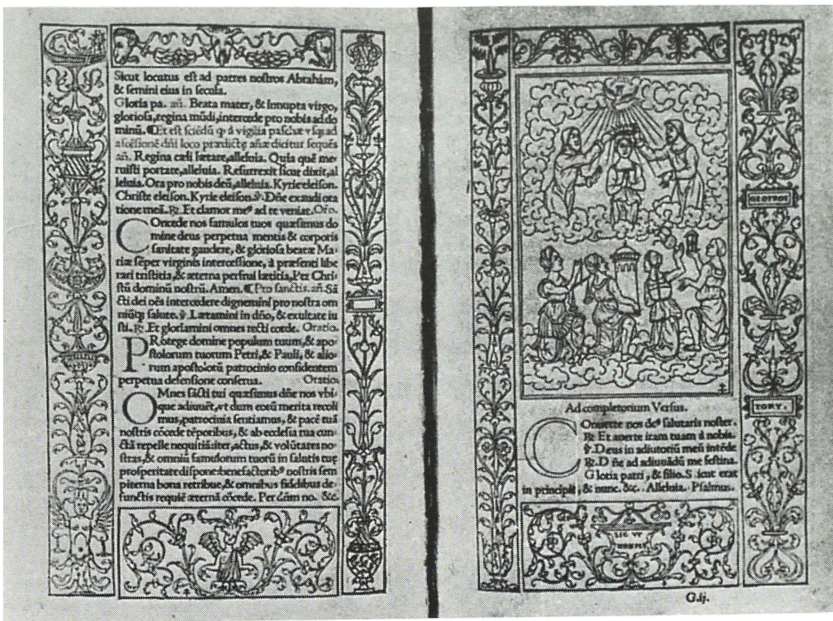 Sicut locutus est ad patres nostros Abrahám,
& semini eius in secula.
Gloria pa. añ. Beata mater, & Innupta virgo,
gloriosa, regina mũdi, intercede pro nobis ad do
minũ. ¶ Et est sciẽdũ ꝙ á vigilia paschæ vsqꝫ ad
ascẽsionẽ dñi loco prædictę añæ dicitur sequẽs
añ. Regina cæli lætare, alleluia. Quia quẽ me
ruisti portare, alleluia. Resurrexit sicut dixit, al
leluia. Ora pro nobis deũ, alleluia. Kyrie eleison.
Christe eleison. Kyrie eleison. ℣. Dñe exaudi ora
tionẽ meã. ℟. Et clamor meꝰ ad te veniat. Orõ.
COncede nos famulos tuos quæsimus do
mine deus perpetua mentis & corporis
sanitate gaudere, & gloriosa beatæ Ma-
riæ sẽper virginis intercessione, á præsenti libe
rari tristitia, & æterna perfrui lætitia, Per Chri
stũ dominũ nostrũ. Amen. ¶ Pro sanctis. añ. Sã
cti dei oẽs intercedere dignemini pro nostra om
niũqꝫ salute. ℣. Lætamini in dño, & exultate iu
sti. ℟. Et gloriamini omnes recti corde. Oratio.
PRotege domine populum tuum, & apo-
stolorum tuorum Petri, & Pauli, & alio-
rum apostolorũ patrocinio confidentem
perpetua defensione conserua. Oratio.
OMnes sãcti tui quæsumus dñe nos vbi-
que adiuuẽt, vt dum eorũ merita recoli
mus, patrocinia sentiamus, & pacẽ tuã
nostris cõcede tẽporibus, & ab ecclesia tua cun-
ctã repelle nequitiã, iter, actus, & volũtates no-
stras, & omniũ famulorum tuorũ in salutis tuę
prosperitate dispone: benefactoribꝰ nostris sem
piterna bona retribue, & omnibus fidelibus de-
functis requiẽ æternã cõcede. Per dñm no. &c.
GEOFROY
Ad completorium Versus.
COnuerte nos deꝰ salutaris noster.
℟. Et auerte iram tuam á nobis.
℣. Deus in adiutoriũ meũ intẽde
℟. Dñe ad adiuuãdũ me festina.
Gloria patri, & filio. Sicut erat
in principii, & nunc. &c. Alleluia. Psalmus.
TORY.
SIC VT
G.iij.